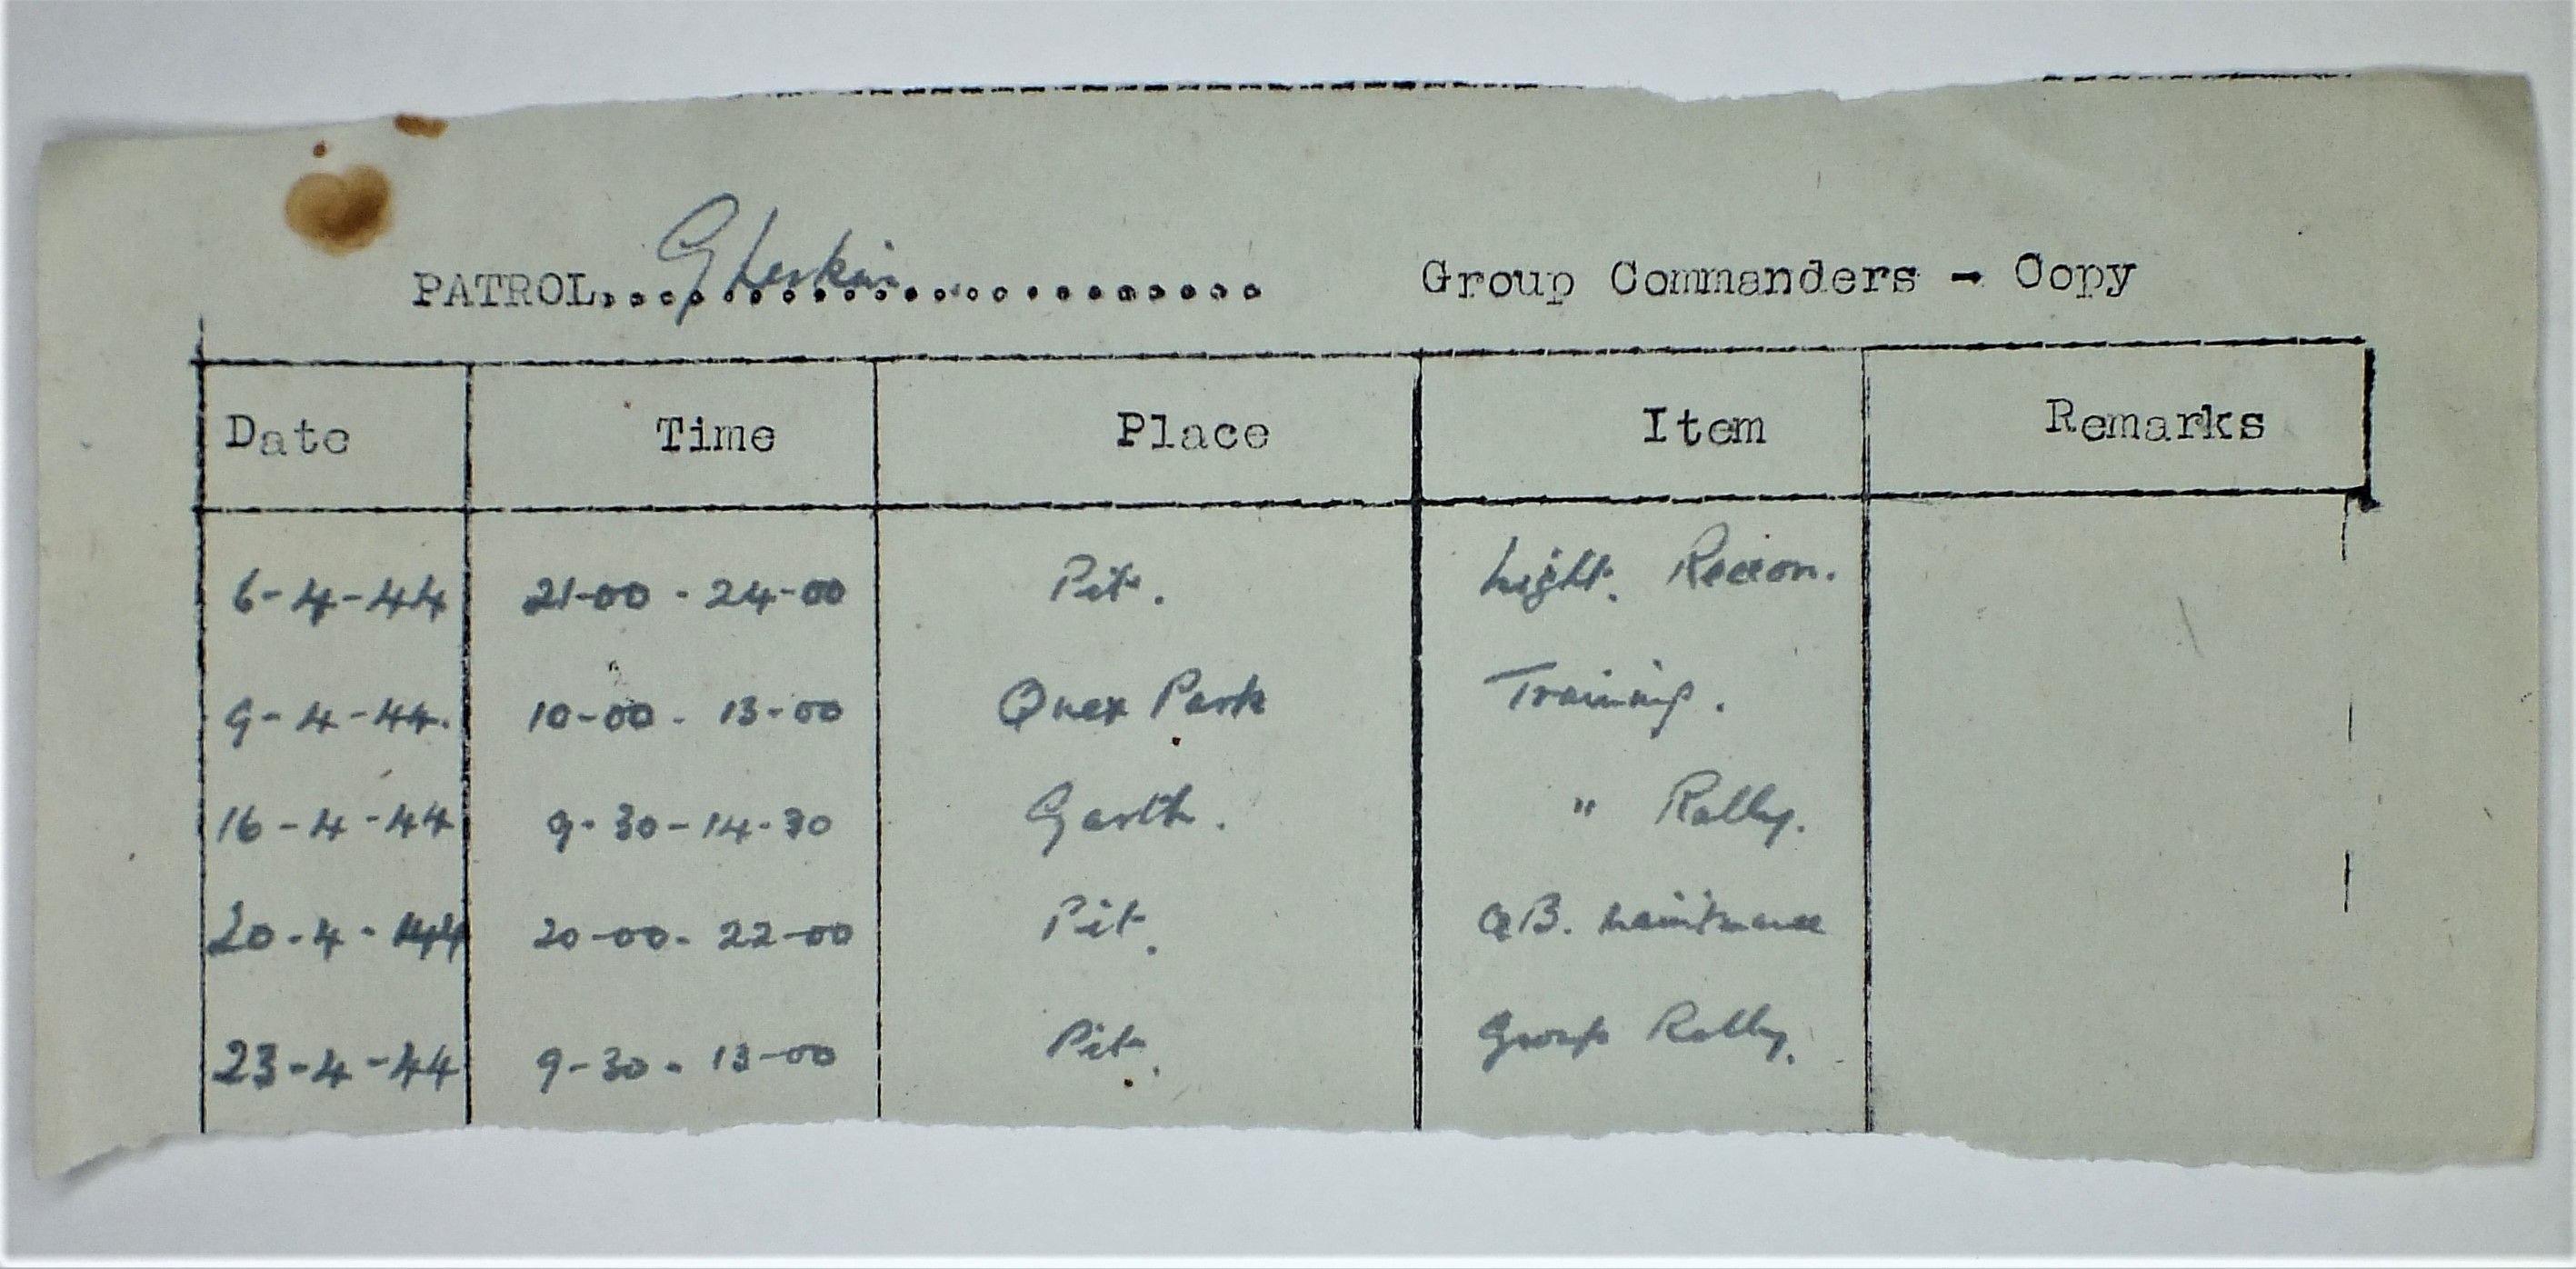 PATROL....Gherkin.................... Group Commanders - Copy
Date Time Place Item Remarks
6-4-44 21-00 - 24-00 Pit. Light. Recon.
9-4-44. 10-00 - 13-00 Quex Park Training.
16-4-44 9-30-14-30 Garth. " Rally.
20-4-44 20-00- 22-00 Pit. OB. maintenance
23-4-44 9-30 - 13-00 Pit. Group Rally.